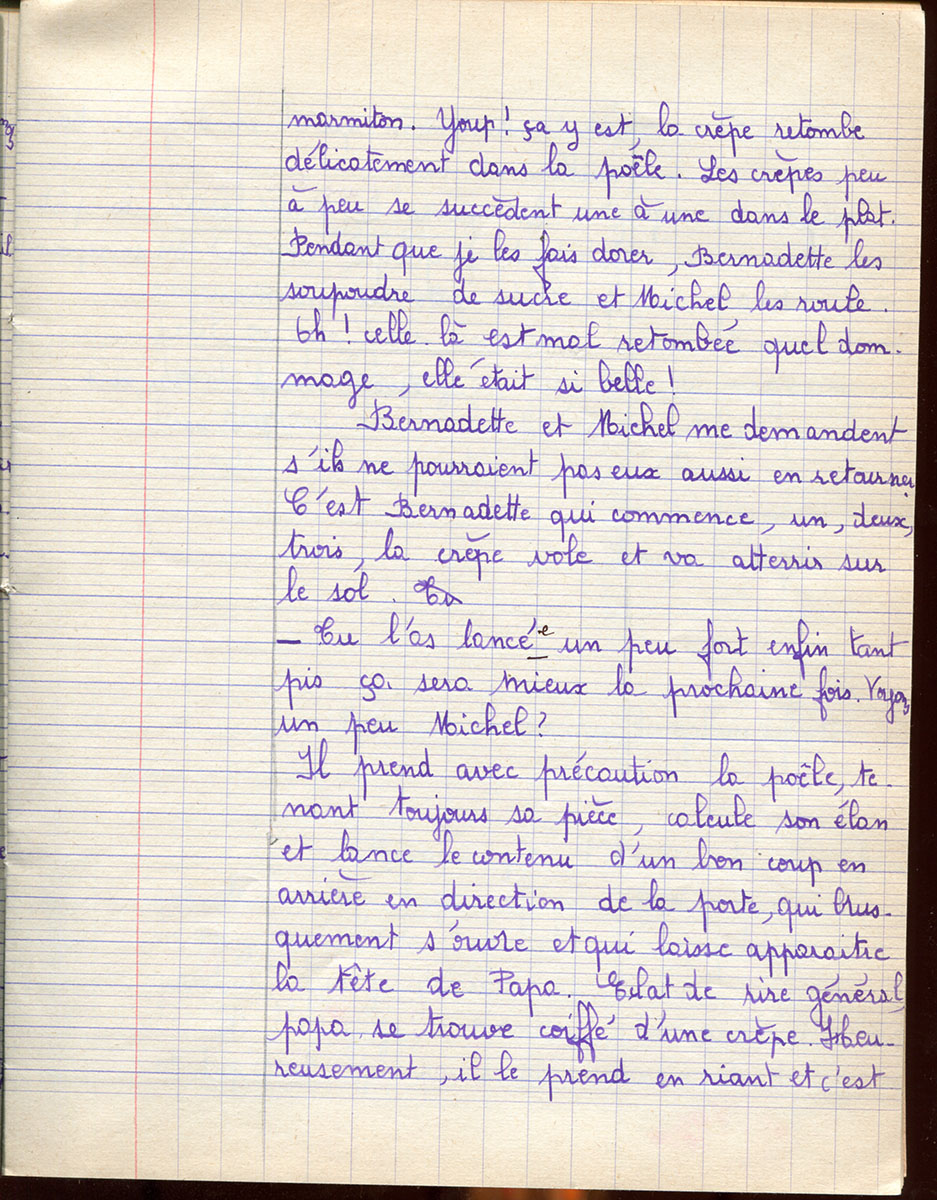 marmiton. Youp! ça y est, la crêpe retombe
délicatement dans la poêle. Les crêpes peu
à peu se succèdent une à une dans le plat.
Pendant que je les fais dorer, Bernadette les
soupoudre de sucre et Michel les roule.
Oh! celle là est mal retombée quel dom-
mage, elle était si belle!
Bernadette et Michel me demandent
s'ils ne pourraient pas eux aussi en retourner.
C'est Bernadette qui commence, un, deux,
trois, la crêpe vole et va atterrir sur
le sol. Tu
– Tu l'as lancée un peu fort enfin tant
pis ça sera mieux la prochaine fois. Voyons
un peu Michel?
Il prend avec précaution la poêle, te-
nant toujours sa pièce, calcule son élan
et lance le contenu d'un bon coup en
arrière en direction de la porte, qui brus-
quement s'ouvre et qui laisse apparaitre
la tête de Papa. Eclat de rire général,
papa se trouve coiffé d'une crêpe. Heu-
reusement, il le prend en riant et c'est